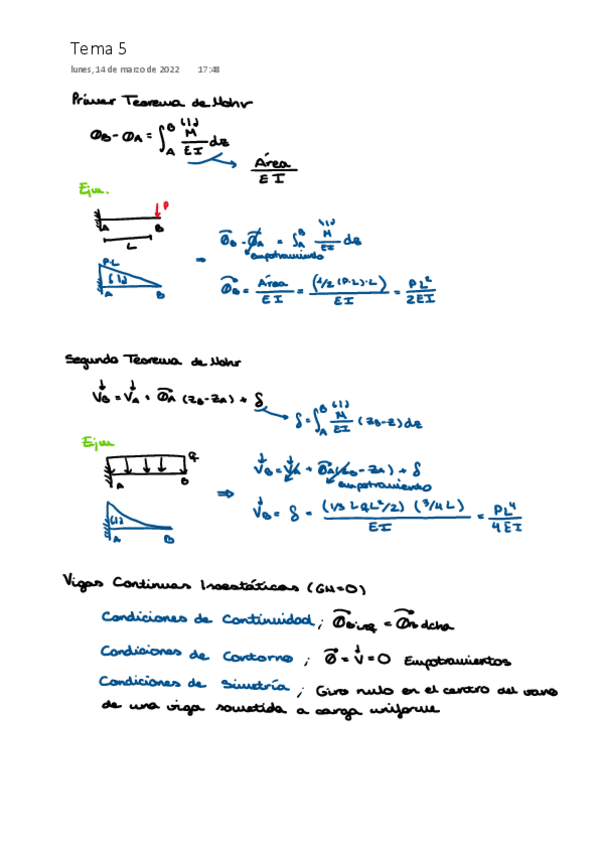 Tema 5
lunes, 14 de marzo de 2022 17:48
Primer Teorema de Mohr
θB - θA = ∫_A^B M/EI dz
Área/EI
Ejm.
P
A B
L
P·L
A B
θB - θA = ∫_A^B M/EI dz
empotramiento
θB = Área/EI = (1/2 (P·L)·L)/EI = PL²/2EI
Segundo Teorema de Mohr
VB = VA + θA (zB - zA) + δ
δ = ∫_A^B M/EI (zB - z) dz
Ejm
q
A B
A B
VB = VA + θA (zB - zA) + δ
empotramiento
VB = δ = (1/3 L qL²/2) (3/4 L)/EI = PL⁴/4EI
Vigas Continuas Isoestáticas (GH=0)
Condiciones de Continuidad; θB izq = θB dcha
Condiciones de Contorno; θ = V = 0 Empotramientos
Condiciones de Simetría; Giro nulo en el centro del vano
de una viga sometida a carga uniforme